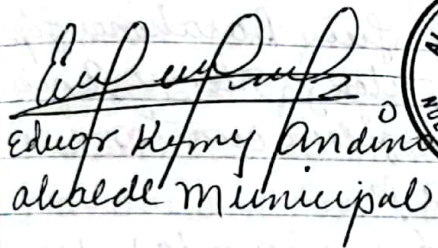 Eduar Henry Andino
alcalde Municipal
AL
NO